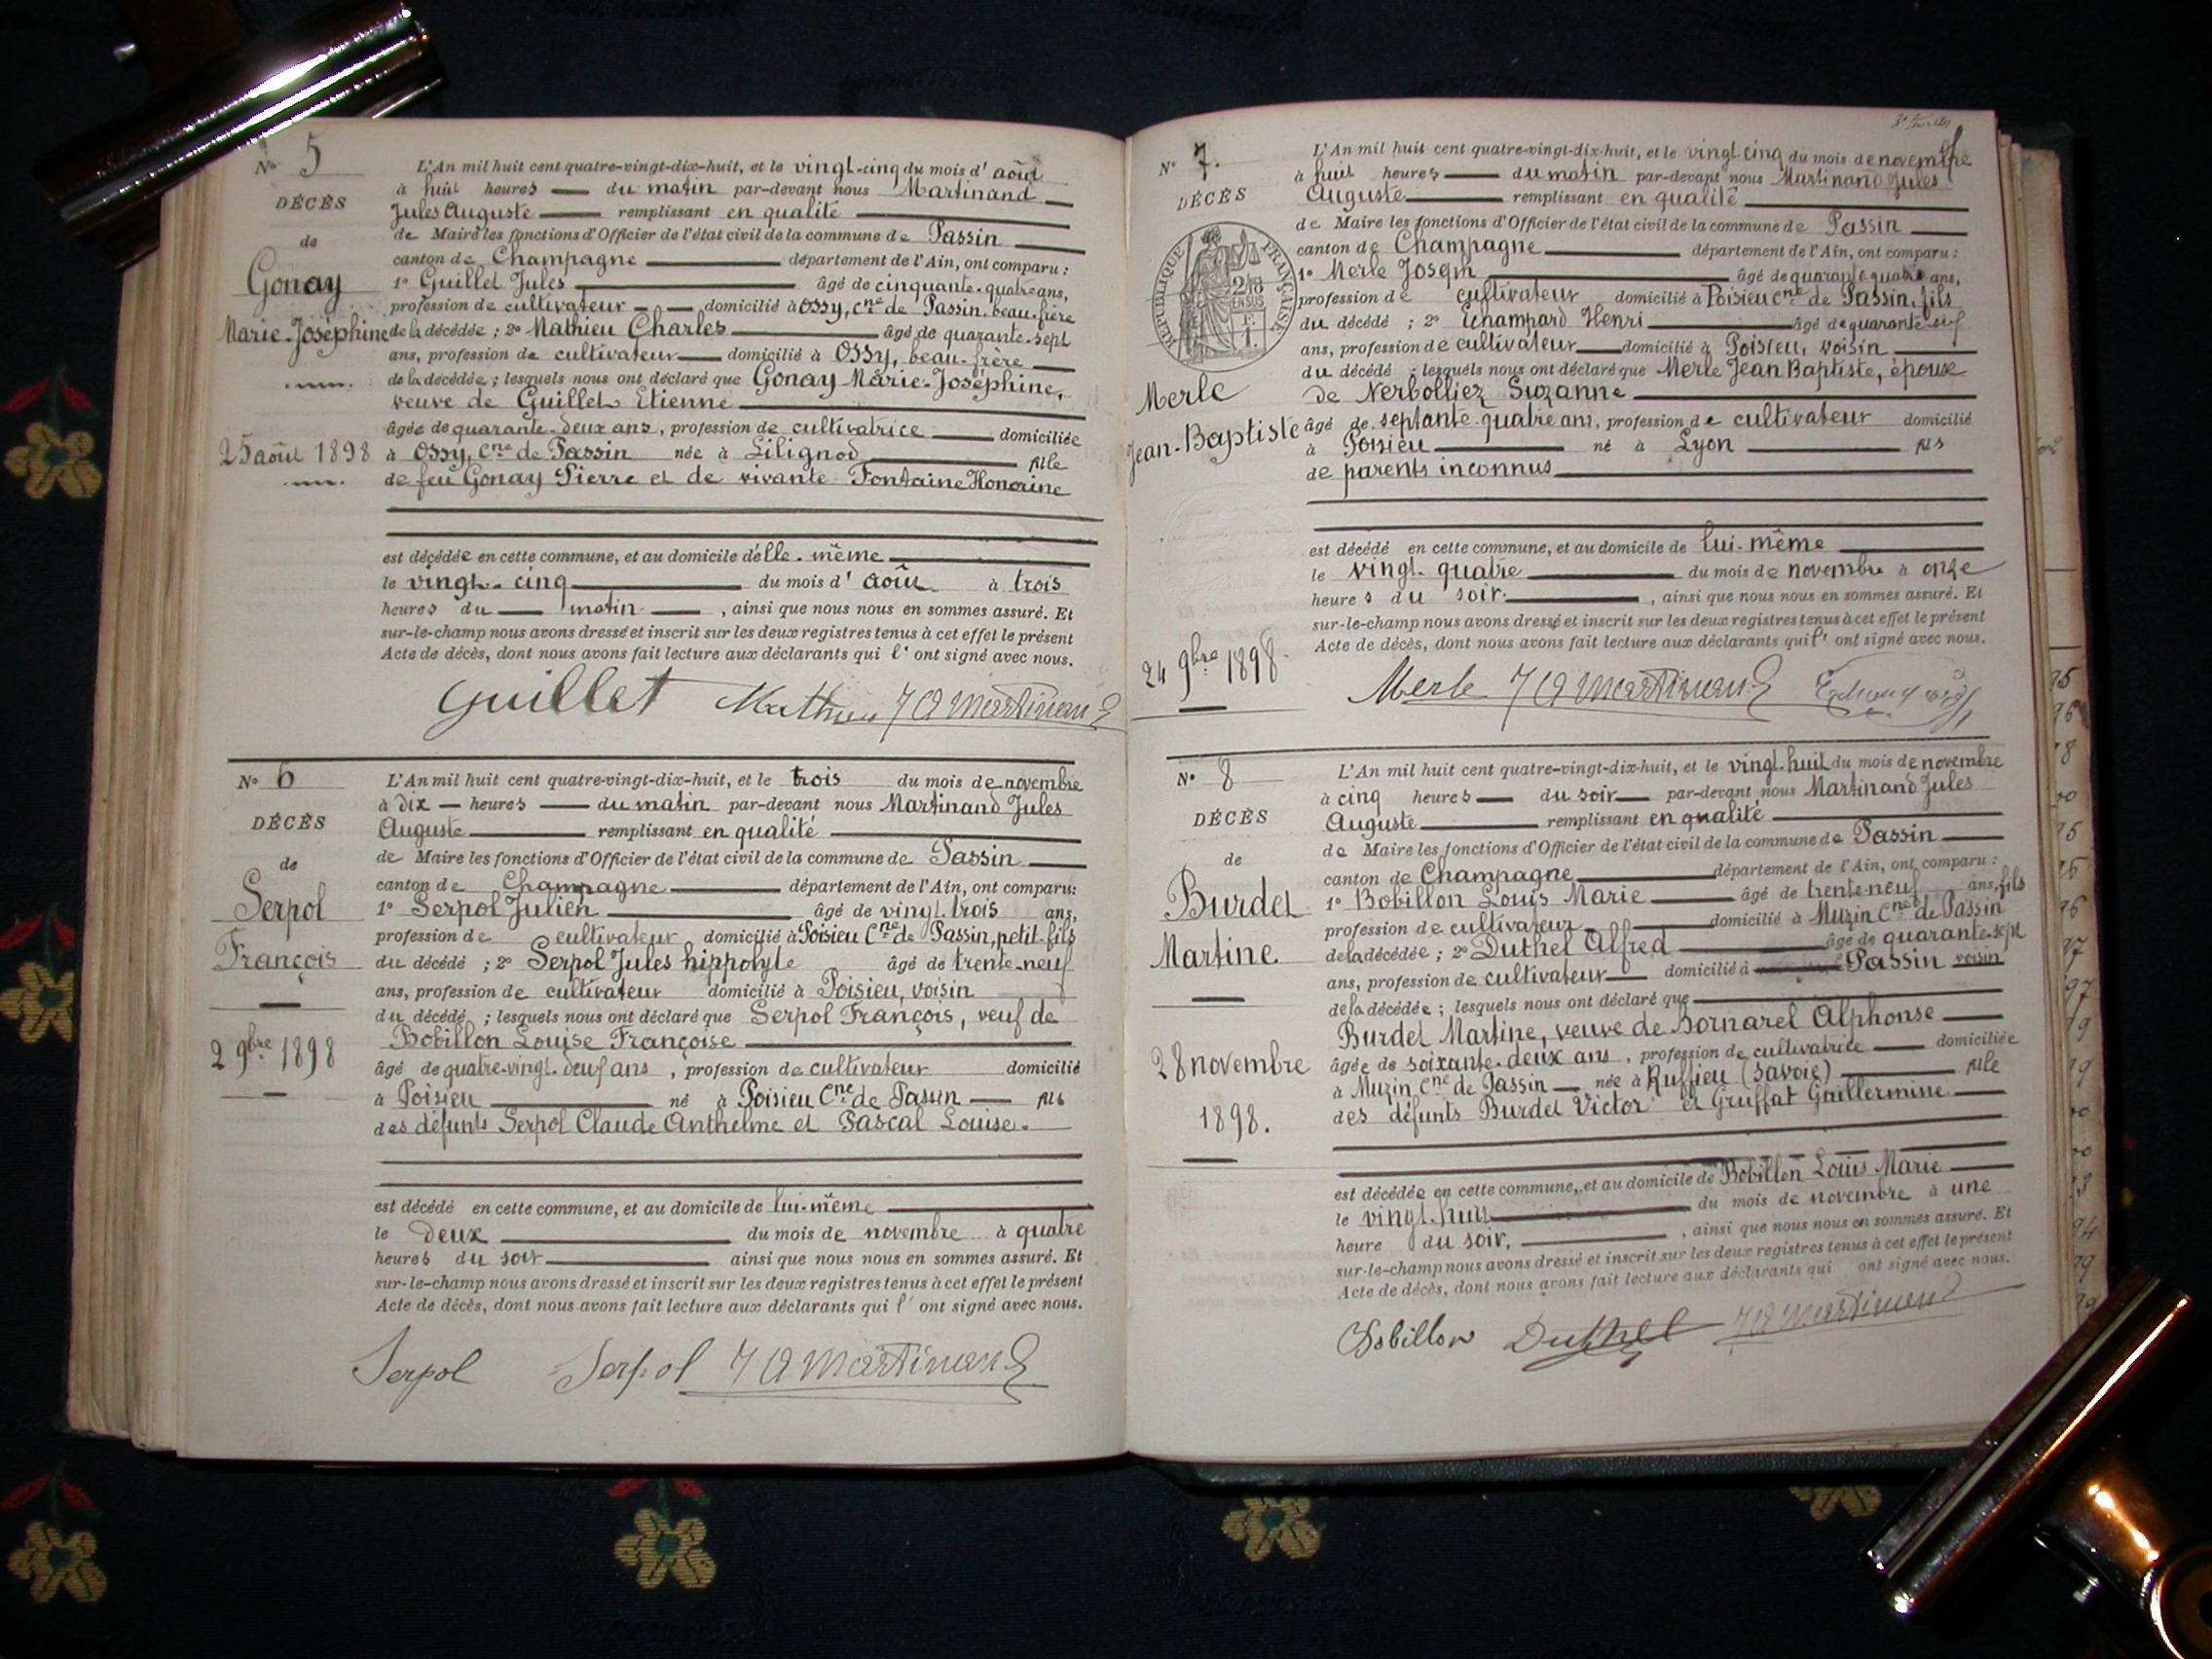 N° 5
DÉCÈS
de
Gonay
Marie-Joséphine
25 août 1898
L'An mil huit cent quatre-vingt-dix-huit, et le vingt-cinq du mois d'août
à huit heures du matin par-devant nous Martinand
Jules Auguste remplissant en qualité
de Maire les fonctions d'Officier de l'état civil de la commune de Passin
canton de Champagne département de l'Ain, ont comparu :
1° Guillet Jules âgé de cinquante-quatre ans,
profession de cultivateur domicilié à Ossy, Cne de Passin, beau-frère
de la décédée ; 2° Mathieu Charles âgé de quarante-sept
ans, profession de cultivateur domicilié à Ossy, beau-frère
de la décédée ; lesquels nous ont déclaré que Gonay Marie-Joséphine,
veuve de Guillet Etienne
âgée de quarante-deux ans, profession de cultivatrice domiciliée
à Ossy, Cne de Passin née à Lilignod fille
de feu Gonay Pierre et de vivante Fontaine Honorine
est décédée en cette commune, et au domicile d'elle-même
le vingt-cinq du mois d'août à trois
heures du matin, ainsi que nous nous en sommes assuré. Et
sur-le-champ nous avons dressé et inscrit sur les deux registres tenus à cet effet le présent
Acte de décès, dont nous avons fait lecture aux déclarants qui l'ont signé avec nous.
Guillet Mathieu JA Martinand
N° 6
DÉCÈS
de
Serpol
François
2 9bre 1898
L'An mil huit cent quatre-vingt-dix-huit, et le trois du mois de novembre
à dix heures du matin par-devant nous Martinand Jules
Auguste remplissant en qualité
de Maire les fonctions d'Officier de l'état civil de la commune de Passin
canton de Champagne département de l'Ain, ont comparu :
1° Serpol Julien âgé de vingt-trois ans,
profession de cultivateur domicilié à Poisieu Cne de Passin, petit-fils
du décédé ; 2° Serpol Jules hippolyte âgé de trente-neuf
ans, profession de cultivateur domicilié à Poisieu, voisin
du décédé ; lesquels nous ont déclaré que Serpol François, veuf de
Bobillon Louise Françoise
âgé de quatre-vingt-deuf ans, profession de cultivateur domicilié
à Poisieu né à Poisieu Cne de Passin fils
des défunts Serpol Claude Anthelme et Pascal Louise.
est décédé en cette commune, et au domicile de lui-même
le deux du mois de novembre à quatre
heures du soir ainsi que nous nous en sommes assuré. Et
sur-le-champ nous avons dressé et inscrit sur les deux registres tenus à cet effet le présent
Acte de décès, dont nous avons fait lecture aux déclarants qui l'ont signé avec nous.
Serpol Serpol JA Martinand
N° 7.
DÉCÈS
RÉPUBLIQUE FRANÇAISE
Merle
Jean-Baptiste
24 9bre 1898
L'An mil huit cent quatre-vingt-dix-huit, et le vingt-cinq du mois de novembre
à huit heures du matin par-devant nous Martinand Jules
Auguste remplissant en qualité
de Maire les fonctions d'Officier de l'état civil de la commune de Passin
canton de Champagne département de l'Ain, ont comparu :
1° Merle Joseph âgé de quarante-quatre ans,
profession de cultivateur domicilié à Poisieu Cne de Passin, fils
du décédé ; 2° Echampard Henri âgé de quarante-
ans, profession de cultivateur domicilié à Poisieu, voisin
du décédé ; lesquels nous ont déclaré que Merle Jean Baptiste, époux
de Nerbolliez Suzanne
âgé de septante-quatre ans, profession de cultivateur domicilié
à Poisieu né à Lyon fils
de parents inconnus
est décédé en cette commune, et au domicile de lui-même
le vingt-quatre du mois de novembre à onze
heures du soir, ainsi que nous nous en sommes assuré. Et
sur-le-champ nous avons dressé et inscrit sur les deux registres tenus à cet effet le présent
Acte de décès, dont nous avons fait lecture aux déclarants qui l'ont signé avec nous.
Merle JA Martinand
N° 8
DÉCÈS
de
Burdet
Martine.
28 novembre
1898.
L'An mil huit cent quatre-vingt-dix-huit, et le vingt-huit du mois de novembre
à cinq heures du soir par-devant nous Martinand Jules
Auguste remplissant en qualité
de Maire les fonctions d'Officier de l'état civil de la commune de Passin
canton de Champagne département de l'Ain, ont comparu :
1° Bobillon Louis Marie âgé de trente-neuf ans, fils
profession de cultivateur domicilié à Muzin Cne de Passin
de la décédée ; 2° Duthel Alfred âgé de quarante-sept
ans, profession de cultivateur domicilié à Passin voisin
de la décédée ; lesquels nous ont déclaré que
Burdet Martine, veuve de Sornarel Alphonse
âgée de soixante-deux ans, profession de cultivatrice domiciliée
à Muzin Cne de Passin née à Ruffieu (Savoie) fille
des défunts Burdet Victor et Gruffat Guillermine
est décédée en cette commune, et au domicile de Bobillon Louis Marie
le vingt-huit du mois de novembre à une
heure du soir, ainsi que nous nous en sommes assuré. Et
sur-le-champ nous avons dressé et inscrit sur les deux registres tenus à cet effet le présent
Acte de décès, dont nous avons fait lecture aux déclarants qui ont signé avec nous.
Bobillon Duthel JA Martinand